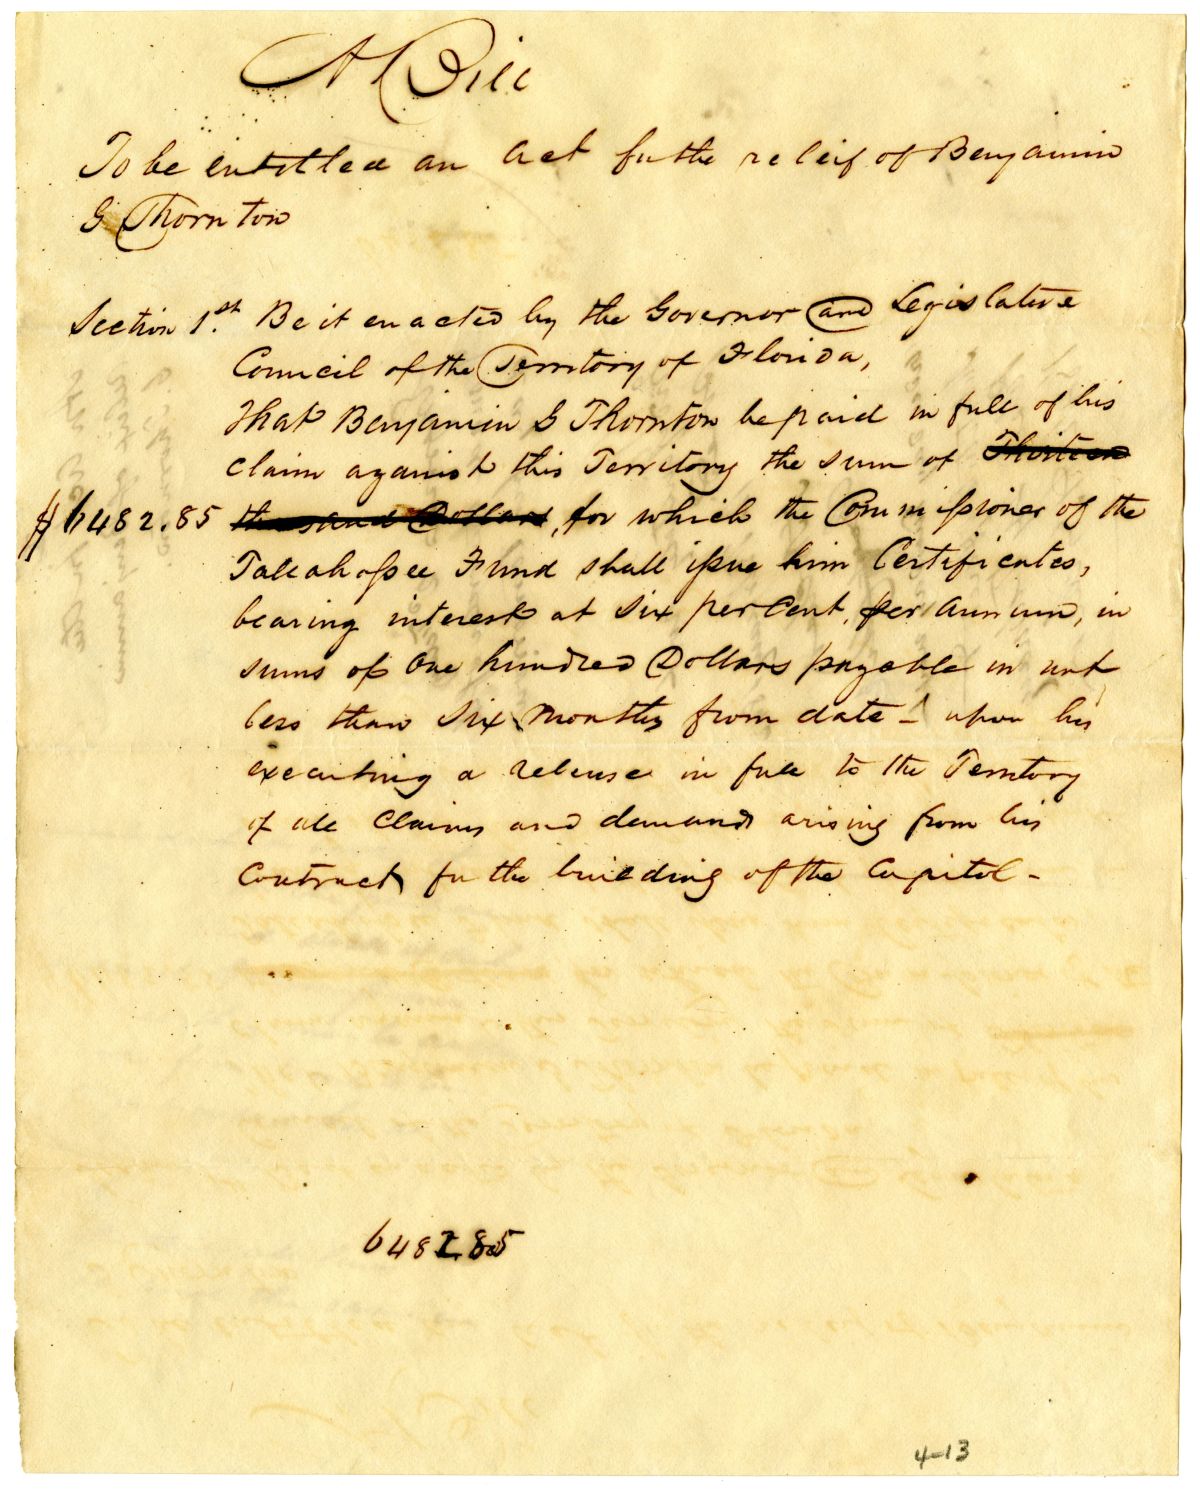 A Bill
To be entitled an Act for the releif of Benjamin
G Thornton
Section 1.st Be it enacted by the Governor and Legislative
Council of the Territory of Florida,
That Benjamin G Thornton be paid in full of his
claim against this Territory the sum of Thirteen
$6482.85 thousand Dollars, for which the Commissioner of the
Tallahassee Fund shall issue him Certificates,
bearing interest at six per Cent, per Annum, in
sums of One hundred Dollars payable in not
less than Six Months from date - upon his
executing a release in full to the Territory
of all Claims and demands arising from his
Contract for the building of the Capitol -
6482.85
4-13